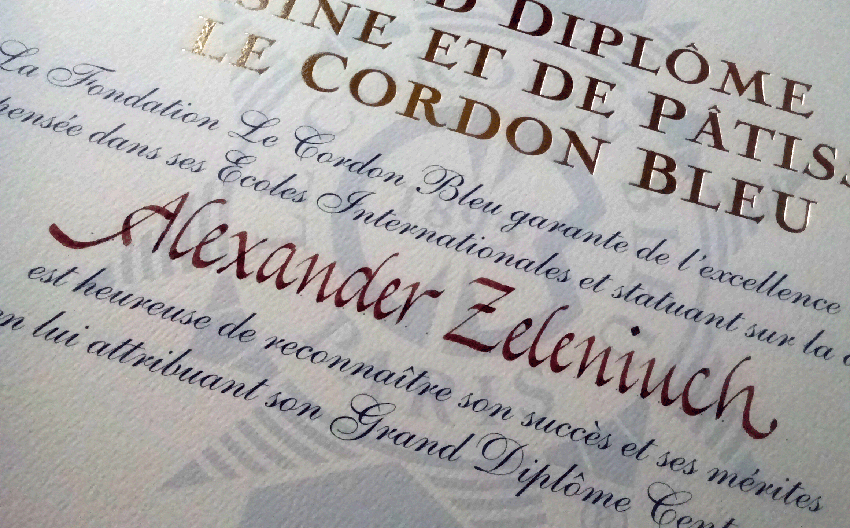 D DIPLÔME
SINE ET DE PÂTISS
LE CORDON BLEU
La Fondation Le Cordon Bleu garante de l'excellence
pensée dans ses Ecoles Internationales et statuant sur la
Alexander Zeleniuch
est heureuse de reconnaître son succès et ses mérites
en lui attribuant son Grand Diplôme Cent
PARIS